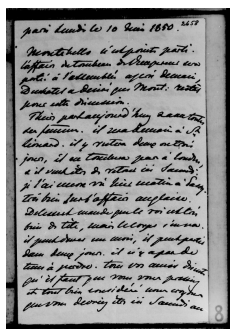 paris lundi le 10 Juin 1850. 2658
Montebello n'est point parti.
l'affaire du tombeau de l'Empereur sera
porté à l'assemblée après demain,
Duchatel a décidé que Mont. restât
pour cette discussion.
Thiers part aujourd'huy avec toutes
ses femmes. il sera demain à St
Léonard. il y restera deux ou trois
jours, il ne tombera pas à londres,
et il veut être de retour ici Samedi.
je l'ai encore vu hier matin
bien sur l'affaire anglaise.
mande que le roi est
bien de tête, mais le corps s'en va.
il peut durer un mois, il peut partir
dans deux jours. il n'y a pas de
tems à perdre. tous vos amis disent
qu'il faut que vous vous
et tout bien considéré nous croyons
que vous devriez être ici Samedi au
8